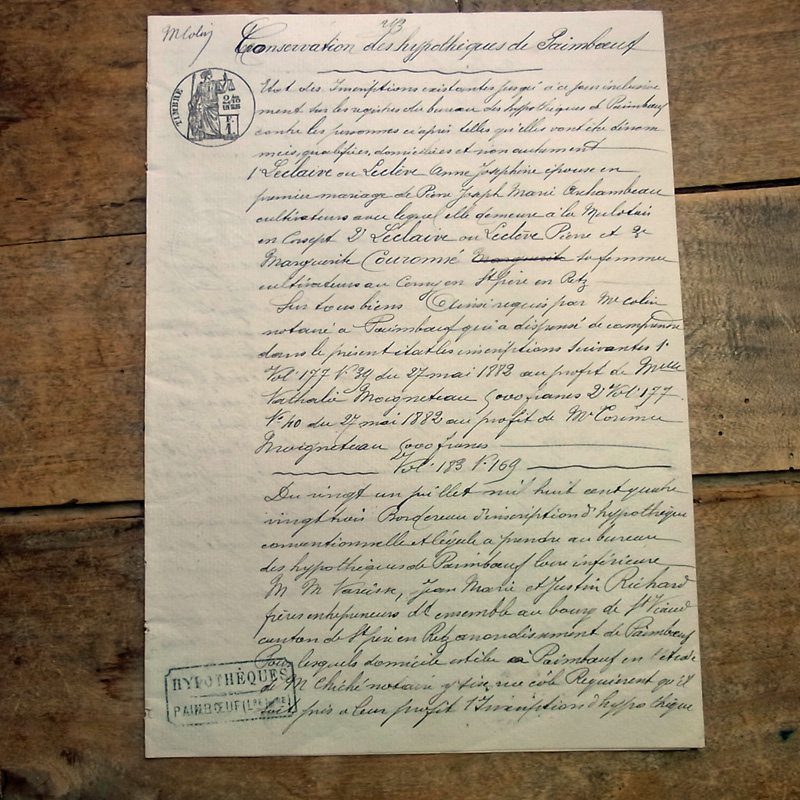 Mr Colin
Conservation des hypothèques de Paimbœuf
TIMBRE
Etat des Inscriptions existantes jusqu'à ce jour inclusive
ment sur les registres du bureau des hypothèques de Paimbœuf
contre les personnes ci après telles qu'elles vont être dénom
mées, qualifiées, domiciliées et non autrement
1° Leclaire ou Leclève Anne Joséphine épouse en
premier mariage de Pierre Joseph Marie Archambeau
cultivateurs avec lequel elle demeure à la
en Corsept 2° Leclaire ou Leclève Pierre et
Marguerite Couronné Marguerite sa femme
cultivateurs au en St Père en Retz
Sur tous biens Ainsi requis par Me Colin
notaire à Paimbœuf qui a dispensé de comprendre
dans le présent état les inscriptions suivantes 1°
Vol. 177 N° 39 du 27 mai 1882 au profit de Melle
Nathalie Moigneteau 5000 francs 2° Vol. 177
N° 40 du 27 mai 1882 au profit de
Moigneteau 5000 francs
Vol. 183 N° 169
Du vingt un juillet mil huit cent quatre
vingt trois Bordereau d'inscription d'hypothèque
conventionnelle et légale à prendre au bureau
des hypothèques de Paimbœuf Loire inférieure
M M Jean Marie et Justin Richard
frères entrepreneurs dt ensemble au bourg de St Viaud
canton de St Père en Retz arrondissement de Paimbœuf
Pour lesquels domicile est élu à Paimbœuf en l'étude
de M Chiché notaire y sise, rue Requièrent qu'il
soit pris à leur profit l'Inscription d'hypothèque
HYPOTHÈQUES
PAIMBŒUF